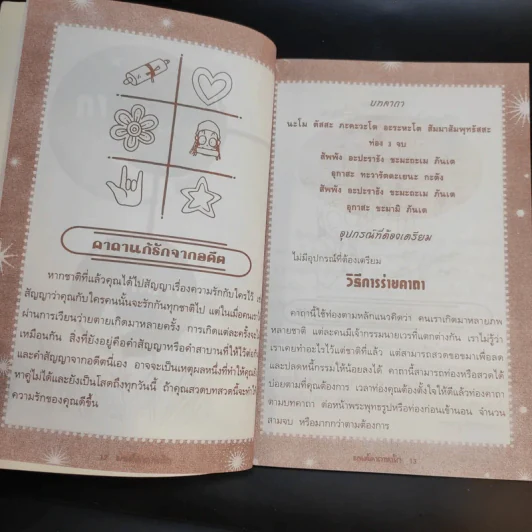 คาถาแก้รักจากอดีต
หากชาติที่แล้วคุณได้ไปสัญญาเรื่องความรักกับใครไว้
สัญญาว่าคุณกับใครคนนั้นจะรักกันทุกชาติไป แต่ในเมื่อคุณ
ผ่านการเรียนว่ายตายเกิดมาหลายครั้ง การเกิดแต่ละครั้ง
เหมือนกัน สิ่งที่ยังอยู่คือคำสัญญาหรือคำสาบานที่ให้ไว้
และคำสัญญาจากอดีตนี่เอง อาจจะเป็นเหตุผลหนึ่งที่ทำให้คุณ
หาคู่ไม่ได้และยังเป็นโสดถึงทุกวันนี้ ถ้าคุณสวดบทสวดนี้จะทำให้
ความรักของคุณดีขึ้น
12
บทคาถา
นะโม ตัสสะ ภะคะวะโต อะระหะโต สัมมาสัมพุทธัสสะ
ท่อง 3 จบ
สัพพัง อะปะราธัง ขะมะถะเม ภันเต
อุกาสะ ทะวารัตตะเยนะ กะตัง
สัพพัง อะปะราธัง ขะมะถะเม ภันเต
อุกาสะ ขะมามิ ภันเต
อุปกรณ์ที่ต้องเตรียม
ไม่มีอุปกรณ์ที่ต้องเตรียม
วิธีการร่ายคาถา
คาถานี้ใช้ท่องตามหลักแนวคิดว่า คนเราเกิดมาหลายภพ
หลายชาติ แต่ละคนมีเจ้ากรรมนายเวรที่แตกต่างกัน เราไม่รู้ว่า
เราเคยทำอะไรไว้แต่ชาติที่แล้ว แต่สามารถสวดขอขมาเพื่อลด
และปลดหนี้กรรมให้น้อยลงได้ คาถานี้สามารถท่องหรือสวดได้
บ่อยตามที่คุณต้องการ เวลาท่องคุณต้องตั้งใจให้ดีแล้วท่องคาถา
ตามบทคาถา ต่อหน้าพระพุทธรูปหรือท่องก่อนเข้านอน จำนวน
สามจบ หรือมากกว่าตามต้องการ
13